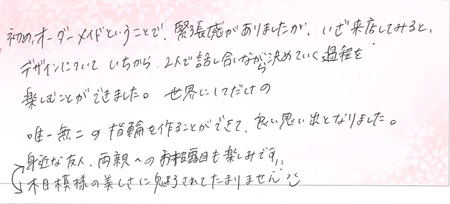 初め、オーダーメイドということで、緊張感がありましたが、いざ来店してみると、
デザインについて いちから 2人で話し合いながら決めていく過程を
楽しむことができました。世界に1つだけの
唯一無二の指輪を作ることができて、良い思い出となりました。
身近な友人、両親へのお披露目も楽しみです!!
木目模様の美しさに魅了されてたまりません